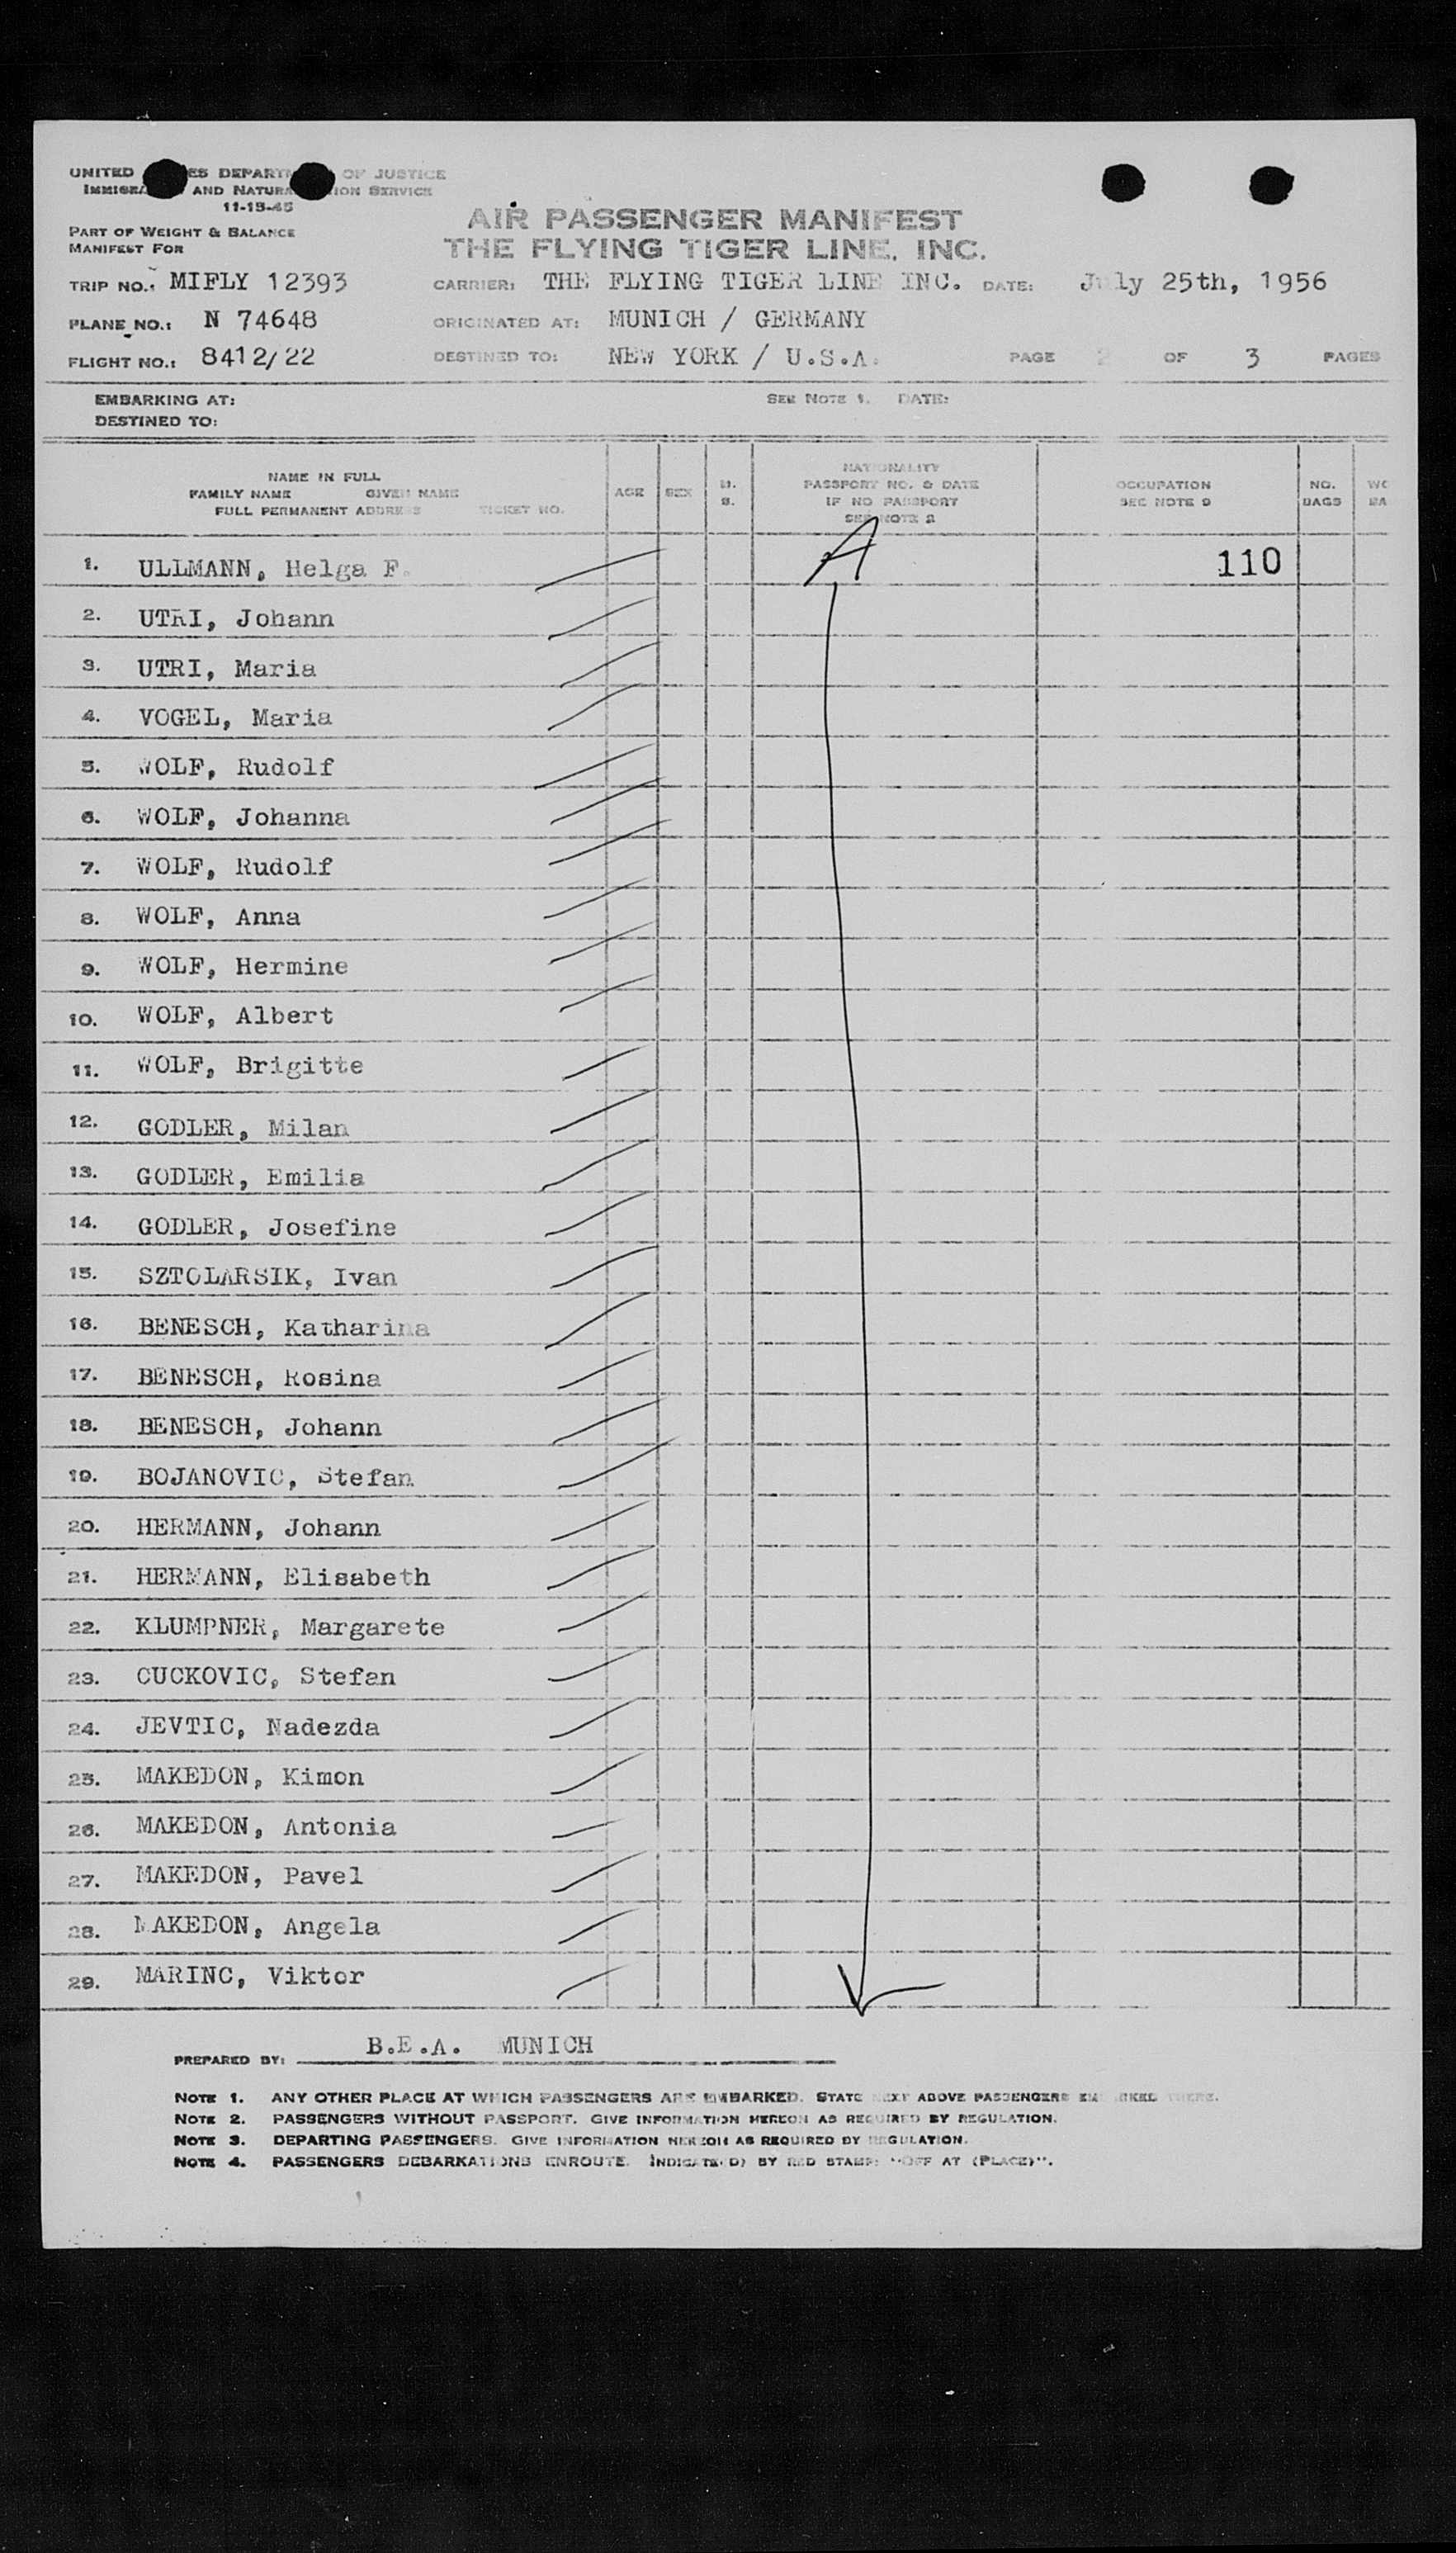 UNITED ES DEPART OF JUSTICE
IMMIGRA AND NATURA ION SERVICE
11-15-45
PART OF WEIGHT & BALANCE
MANIFEST FOR
AIR PASSENGER MANIFEST
THE FLYING TIGER LINE, INC.
TRIP NO.: MIFLY 12393 CARRIER: THE FLYING TIGER LINE INC. DATE: July 25th, 1956
PLANE NO.: N 74648 ORIGINATED AT: MUNICH / GERMANY
FLIGHT NO.: 8412/22 DESTINED TO: NEW YORK / U.S.A. PAGE 2 OF 3 PAGES
EMBARKING AT: SEE NOTE 1. DATE:
DESTINED TO:
NAME IN FULL
FAMILY NAME GIVEN NAME
FULL PERMANENT ADDRESS TICKET NO.
AGE SEX M. S.
NATIONALITY
PASSPORT NO. & DATE
IF NO PASSPORT
SEE NOTE 2
OCCUPATION
SEE NOTE 3
NO.
BAGS
1. ULLMANN, Helga F. A 110
2. UTRI, Johann
3. UTRI, Maria
4. VOGEL, Maria
5. WOLF, Rudolf
6. WOLF, Johanna
7. WOLF, Rudolf
8. WOLF, Anna
9. WOLF, Hermine
10. WOLF, Albert
11. WOLF, Brigitte
12. GODLER, Milan
13. GODLER, Emilia
14. GODLER, Josefine
15. SZTOLARSIK, Ivan
16. BENESCH, Katharina
17. BENESCH, Rosina
18. BENESCH, Johann
19. BOJANOVIC, Stefan
20. HERMANN, Johann
21. HERMANN, Elisabeth
22. KLUMPNER, Margarete
23. CUCKOVIC, Stefan
24. JEVTIC, Nadezda
25. MAKEDON, Kimon
26. MAKEDON, Antonia
27. MAKEDON, Pavel
28. MAKEDON, Angela
29. MARINC, Viktor
PREPARED BY: B.E.A. MUNICH
NOTE 1. ANY OTHER PLACE AT WHICH PASSENGERS ARE EMBARKED. STATE NEXT ABOVE PASSENGERS EMBARKED THERE.
NOTE 2. PASSENGERS WITHOUT PASSPORT. GIVE INFORMATION HEREON AS REQUIRED BY REGULATION.
NOTE 3. DEPARTING PASSENGERS. GIVE INFORMATION HEREON AS REQUIRED BY REGULATION.
NOTE 4. PASSENGERS DEBARKATIONS ENROUTE. INDICATE(D) BY RED STAMP: "OFF AT (PLACE)".